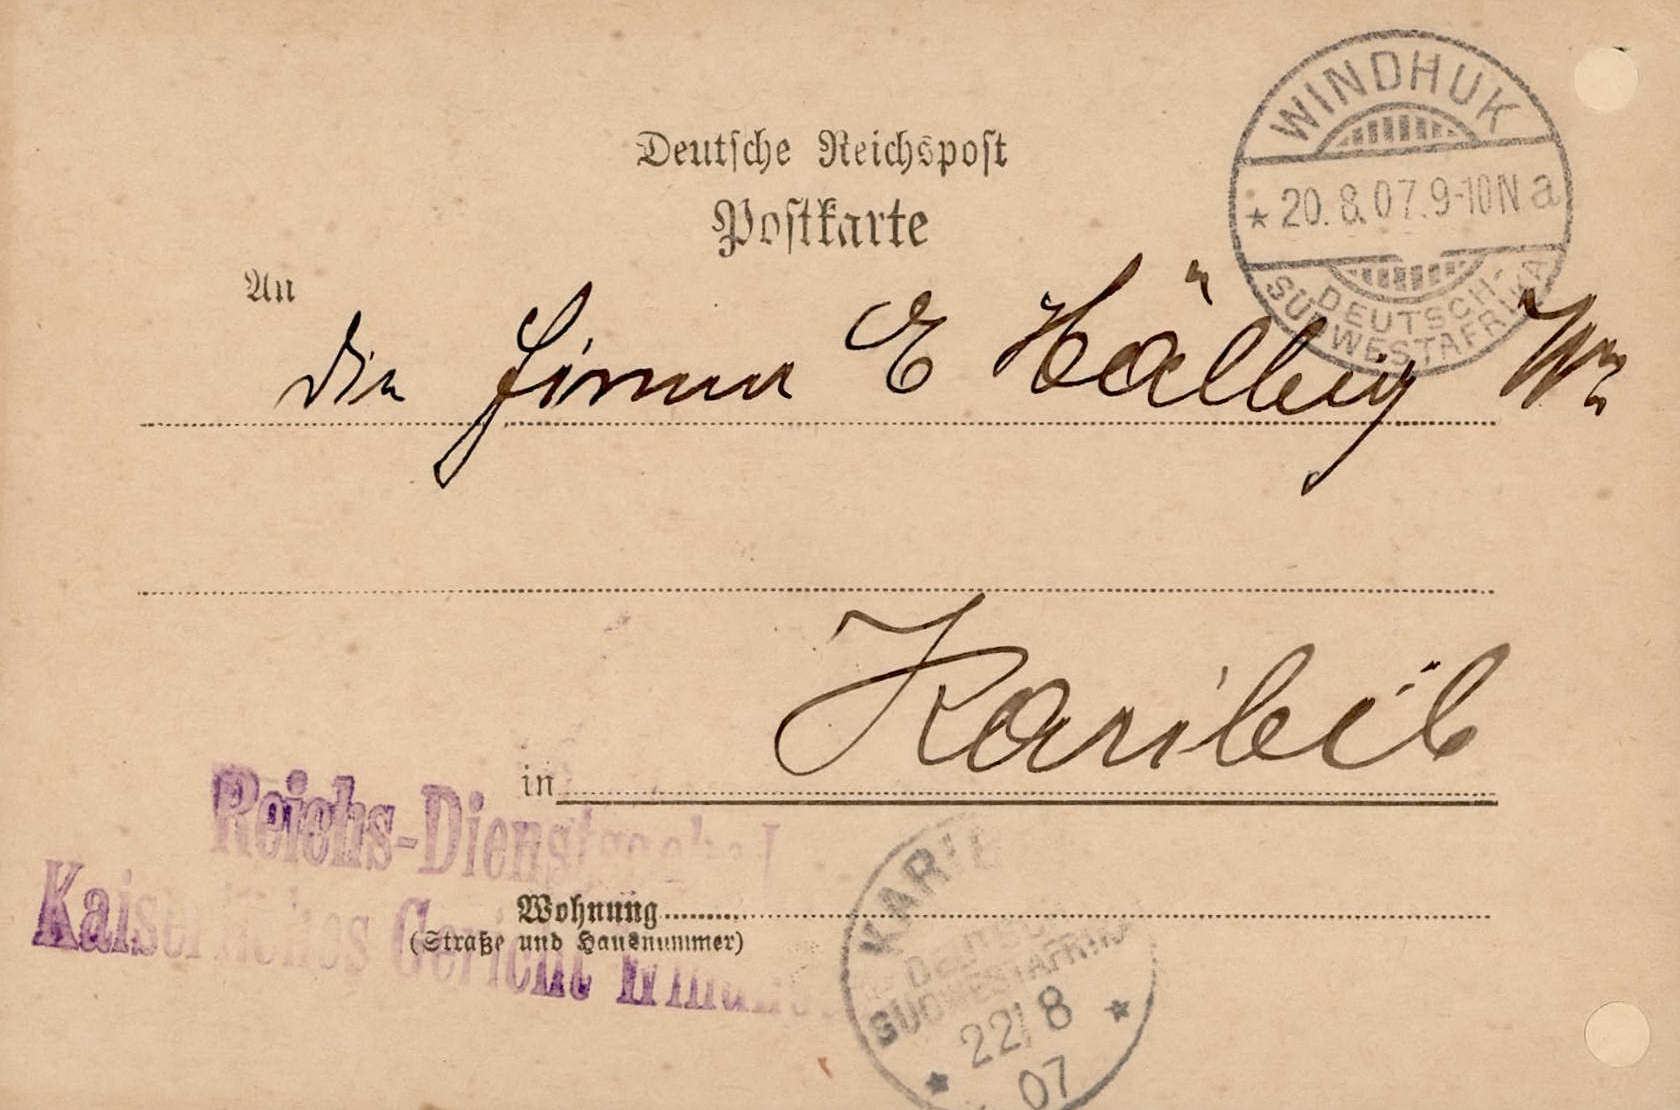 Deutsche Reichspost
Postkarte
WINDHUK
* 20.8.07.9-10N a
DEUTSCH-
SÜDWESTAFRIKA
An
die Firma E Hälbig Ww
Karibib
in
Reichs-Dienstsache!
Kaiserliches Gericht Windhuk
Wohnung
(Straße und Hausnummer)
KARIB
DEUTSCH
SÜDWESTAFRIKA
* 22/8 *
07